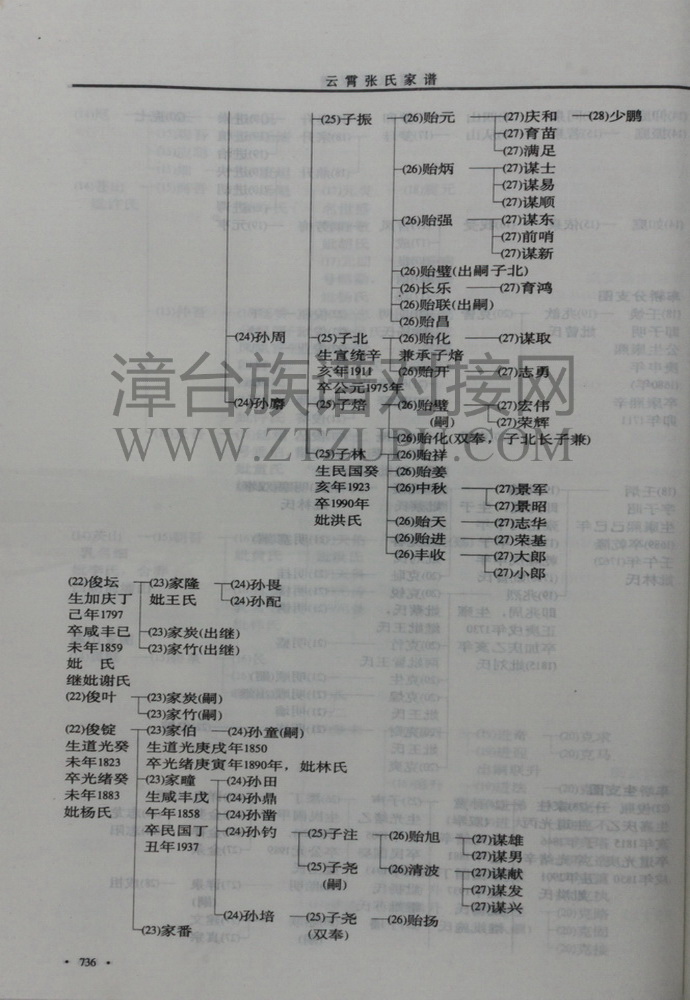 云霄张氏家谱
(25)子振 (26)贻元 (27)庆和 (28)少鹏
(27)育苗
(27)满足
(26)贻炳 (27)谋士
(27)谋易
(27)谋顺
(26)贻强 (27)谋东
(27)前哨
(27)谋新
(26)贻璧(出嗣子北)
(26)长乐 (27)育鸿
(26)贻联(出嗣)
(26)贻昌
(24)孙周 (25)子北 (26)贻化 (27)谋取
生宣统辛 兼承子焙
亥年1911 (26)贻开 (27)志勇
卒公元1975年
(24)孙麝 (25)子焙 (26)贻璧 (27)宏伟
(嗣) (27)荣辉
(26)贻化(双奉,子北长子兼)
(25)子林 (26)贻祥
生民国癸 (26)贻姜
亥年1923 (26)中秋 (27)景军
卒1990年 (27)景昭
妣洪氏 (26)贻天 (27)志华
(26)贻进 (27)荣基
(26)丰收 (27)大郎
(27)小郎
(22)俊坛 (23)家隆 (24)孙畏
生加庆丁 妣王氏 (24)孙配
己年1797
卒咸丰已 (23)家炭(出继)
未年1859 (23)家竹(出继)
妣 氏
继妣谢氏
(22)俊叶 (23)家炭(嗣)
(23)家竹(嗣)
(22)俊锭 (23)家伯 (24)孙童(嗣)
生道光癸 生道光庚戌年1850
未年1823 卒光绪庚寅年1890年,妣林氏
卒光绪癸 (23)家疃 (24)孙田
未年1883 生咸丰戊 (24)孙鼎
妣杨氏 午年1858 (24)孙凿
卒民国丁 (24)孙钓 (25)子注 (26)贻旭 (27)谋雄
丑年1937 (27)谋男
(25)子尧 (26)清波 (27)谋献
(嗣) (27)谋发
(27)谋兴
(24)孙培 (25)子尧 (26)贻扬
(23)家番 (双奉)
· 736 ·
漳台族谱对接网
WWW.ZTZUPU.COM